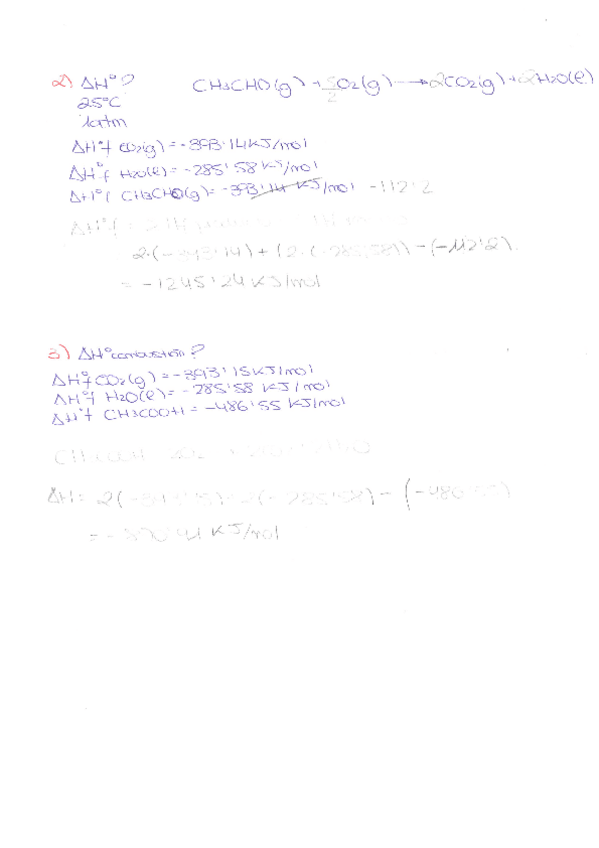 2) ΔH° ? CH3CHO(g) + 5/2 O2(g) → 2CO2(g) + 2H2O(l)
25°C
1atm
ΔH°f CO2(g) = -393'14 KJ/mol
ΔH°f H2O(l) = -285'58 KJ/mol
ΔH°f CH3CHO(g) = -393'14 KJ/mol -112'2
ΔH°f =
2·(-393'14) + (2·(-285'58)) - (-112'2)
= -1245'24 KJ/mol
3) ΔH° combustión?
ΔH°f CO2(g) = -393'15 KJ/mol
ΔH°f H2O(l) = -285'58 KJ/mol
ΔH°f CH3COOH = -486'55 KJ/mol
CH3COOH
ΔH = 2(-393'15) 2(-285'58) - (-486'55)
= -870'41 KJ/mol